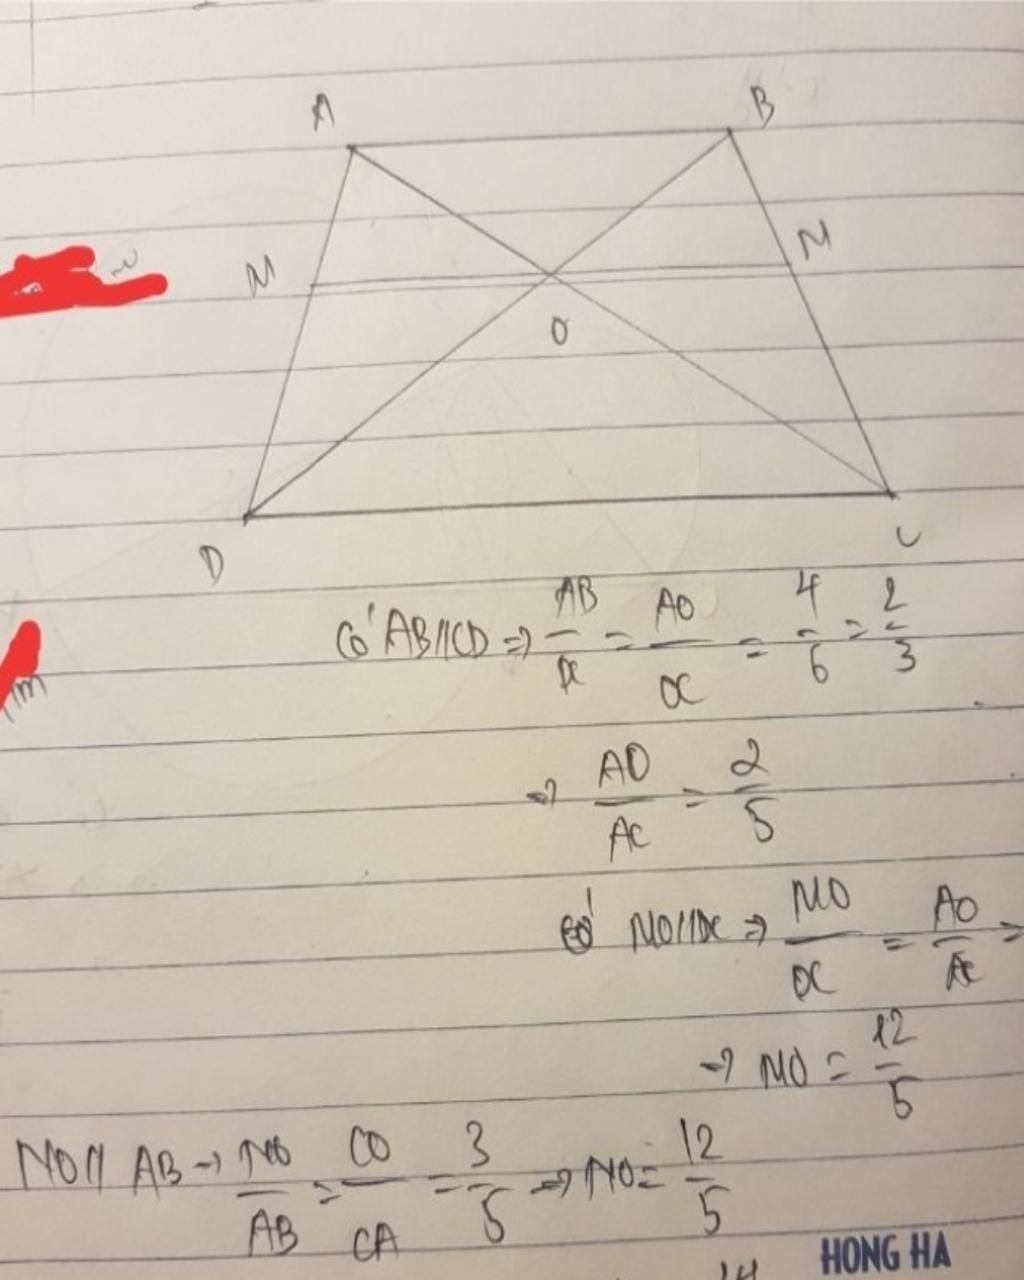 A
B
N
M
O
D
C
Có AB//CD => AB/DC = AO/OC = 4/6 = 2/3
→ AO/AC = 2/5
có MO//DC => MO/DC = AO/AC =
→ MO = 12/5
NO // AB → NO/AB = CO/CA = 3/5 → NO = 12/5
HONG HA